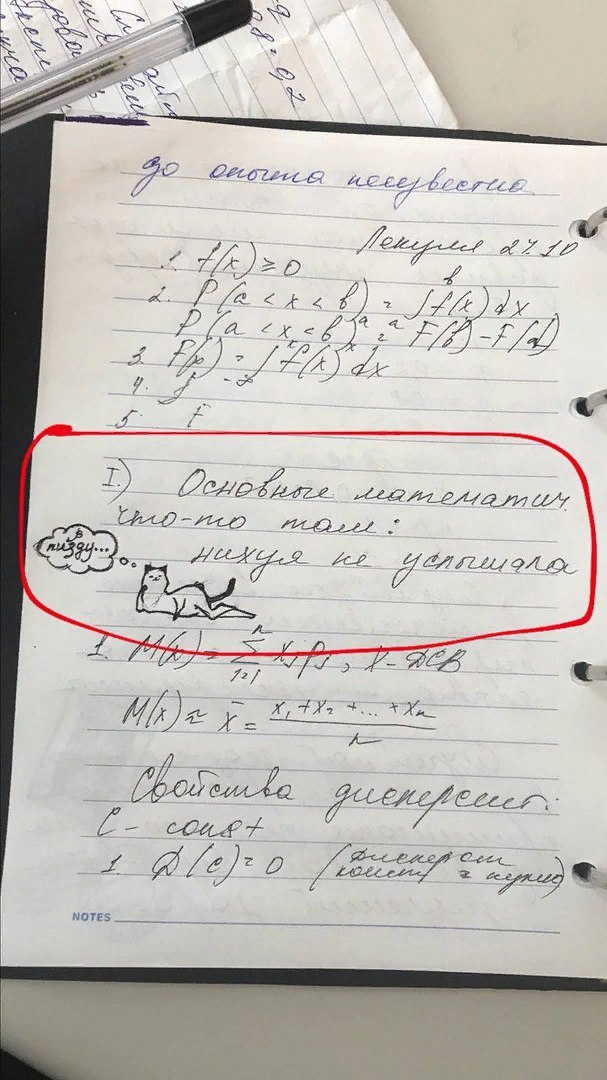 до опыта неизвестна
Лекция 27.10
1. f(x) ≥ 0
2. P(a < x < b) = ∫ₐᵇ f(x) dx
P(a < x < b) = F(b) - F(a)
3. F(x) = ∫ f(x) dx
4.
5. F
I.) Основные математич.
что-то там:
нихуя не услышала
в
пизду...
1. M(x) = ∑ⁿⱼ₌₁ xⱼpⱼ, X - ДСВ
M(x) ≈ x̄ = (x₁ + x₂ + ... + xₙ) / n
Свойства дисперсии:
C - const
1. D(c) = 0 (дисперсия
конст = нулю)
NOTES